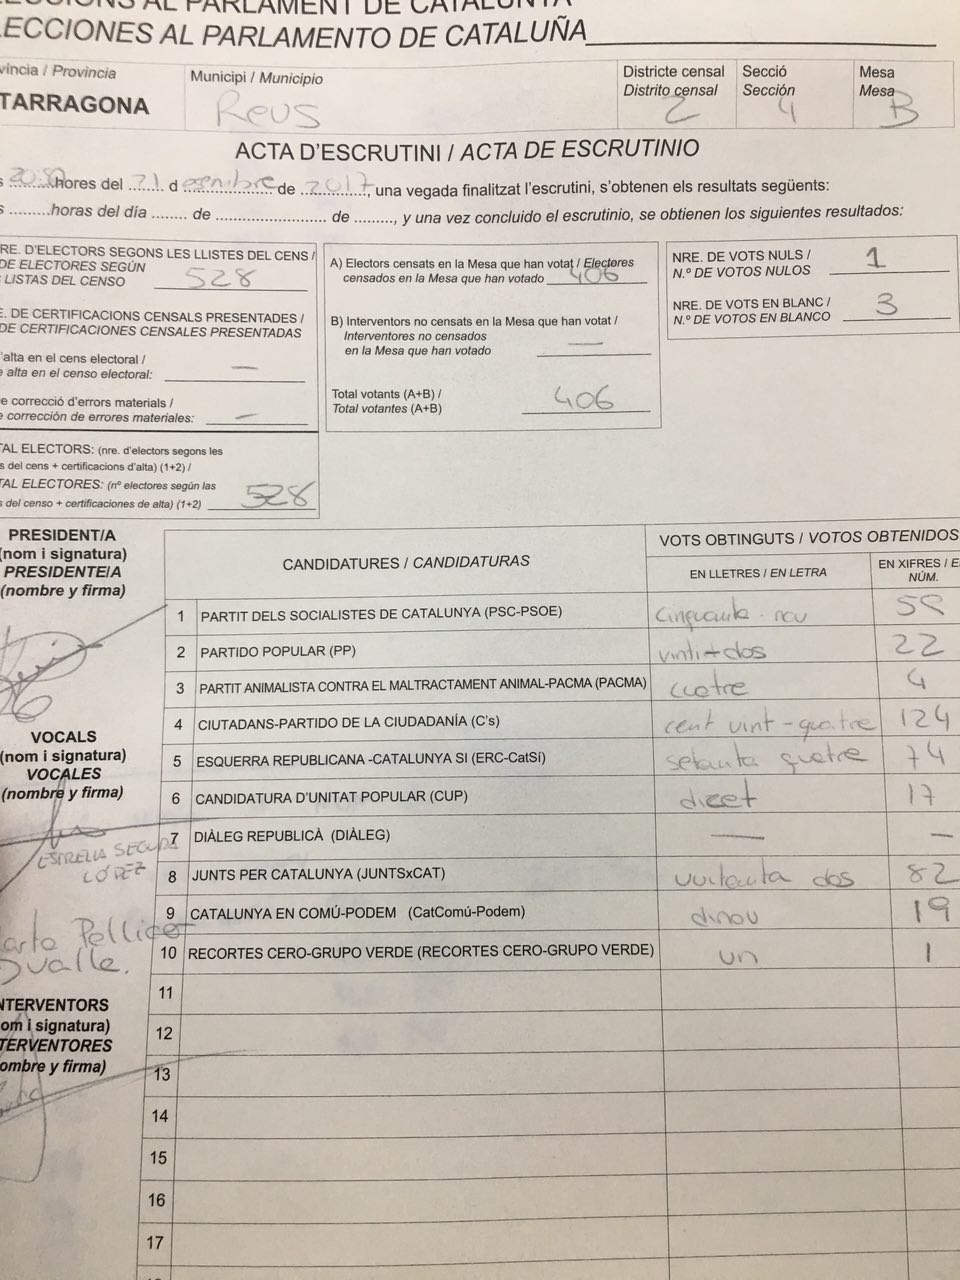 AL PARLAMENT DE CATALUNYA
ECCIONES AL PARLAMENTO DE CATALUÑA
víncia / Provincia
TARRAGONA
Municipi / Municipio
Reus
Districte censal
Distrito censal
2
Secció
Sección
4
Mesa
Mesa
B
ACTA D'ESCRUTINI / ACTA DE ESCRUTINIO
s ........hores del 21 desembre de 2017, una vegada finalitzat l'escrutini, s'obtenen els resultats següents:
s .........horas del día ........ de ......................... de ........., y una vez concluido el escrutinio, se obtienen los siguientes resultados:
RE. D'ELECTORS SEGONS LES LLISTES DEL CENS /
DE ELECTORES SEGÚN
LISTAS DEL CENSO 528
E. DE CERTIFICACIONS CENSALS PRESENTADES /
DE CERTIFICACIONES CENSALES PRESENTADAS
'alta en el cens electoral /
e alta en el censo electoral: —
e correcció d'errors materials /
e corrección de errores materiales: —
TAL ELECTORS: (nre. d'electors segons les
s del cens + certificacions d'alta) (1+2) /
TAL ELECTORES: (nº electores según las
s del censo + certificaciones de alta) (1+2) 528
A) Electors censats en la Mesa que han votat / Electores
censados en la Mesa que han votado 406
B) Interventors no censats en la Mesa que han votat /
Interventores no censados
en la Mesa que han votado —
Total votants (A+B) /
Total votantes (A+B) 406
NRE. DE VOTS NULS /
N.º DE VOTOS NULOS 1
NRE. DE VOTS EN BLANC /
N.º DE VOTOS EN BLANCO 3
PRESIDENT/A
(nom i signatura)
PRESIDENTE/A
(nombre y firma)
VOCALS
(nom i signatura)
VOCALES
(nombre y firma)
ESTRELLA SEGURA
LÓPEZ
arta Pellicer
Ovalle.
NTERVENTORS
om i signatura)
TERVENTORES
ombre y firma)
CANDIDATURES / CANDIDATURAS
VOTS OBTINGUTS / VOTOS OBTENIDOS
EN LLETRES / EN LETRA
EN XIFRES / E
NÚM.
1 PARTIT DELS SOCIALISTES DE CATALUNYA (PSC-PSOE) cinquanta-nou 59
2 PARTIDO POPULAR (PP) vinti-dos 22
3 PARTIT ANIMALISTA CONTRA EL MALTRACTAMENT ANIMAL-PACMA (PACMA) cuatre 4
4 CIUTADANS-PARTIDO DE LA CIUDADANÍA (C's) cent vint-quatre 124
5 ESQUERRA REPUBLICANA -CATALUNYA SI (ERC-CatSí) setanta quatre 74
6 CANDIDATURA D'UNITAT POPULAR (CUP) dicet 17
7 DIÀLEG REPUBLICÀ (DIÀLEG) — —
8 JUNTS PER CATALUNYA (JUNTSxCAT) vuitanta dos 82
9 CATALUNYA EN COMÚ-PODEM (CatComú-Podem) dinou 19
10 RECORTES CERO-GRUPO VERDE (RECORTES CERO-GRUPO VERDE) un 1
11
12
13
14
15
16
17